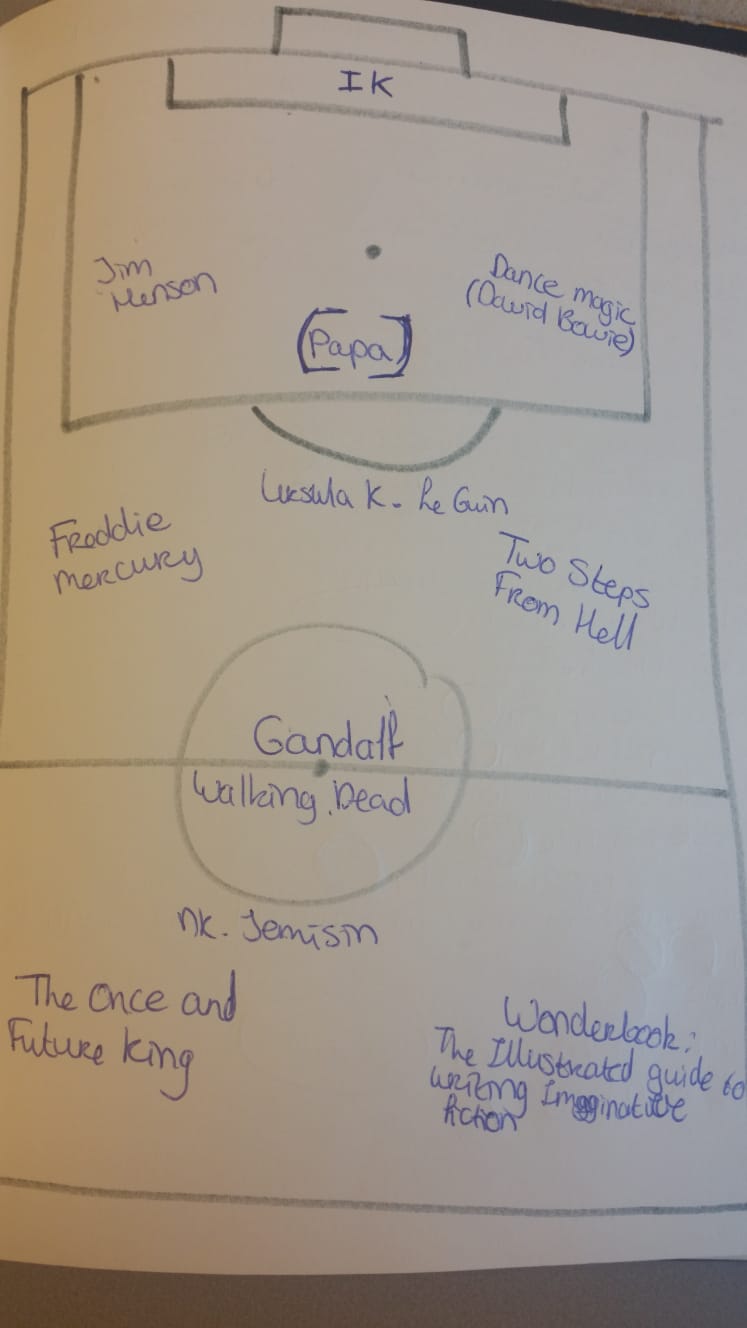 IK
Jim
Henson
Dance magic
(David Bowie)
(Papa)
Ursula K. Le Guin
Freddie
mercury
Two Steps
From Hell
Gandalf
Walking Dead
nk. Jemisin
The Once and
Future King
Wonderbook:
The Illustrated guide to
writing Imaginative
fiction